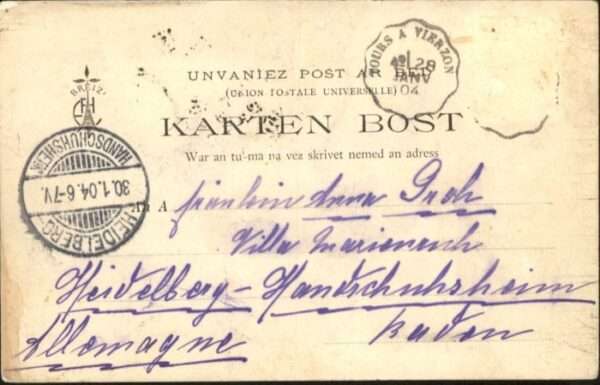 UNVANIEZ POST AR BED
(UNION POSTALE UNIVERSELLE)
KARTEN BOST
War an tu-ma na vez skrivet nemed an adress
TOURS A VIERZON
28
JANV
04
BREIZ
FH
HEIDELBERG
30.1.04.6-7V.
HANDSCHUHSHEIM
A Fräulein Anna
Villa
Heidelberg-Handschuhsheim
Baden
Allemagne